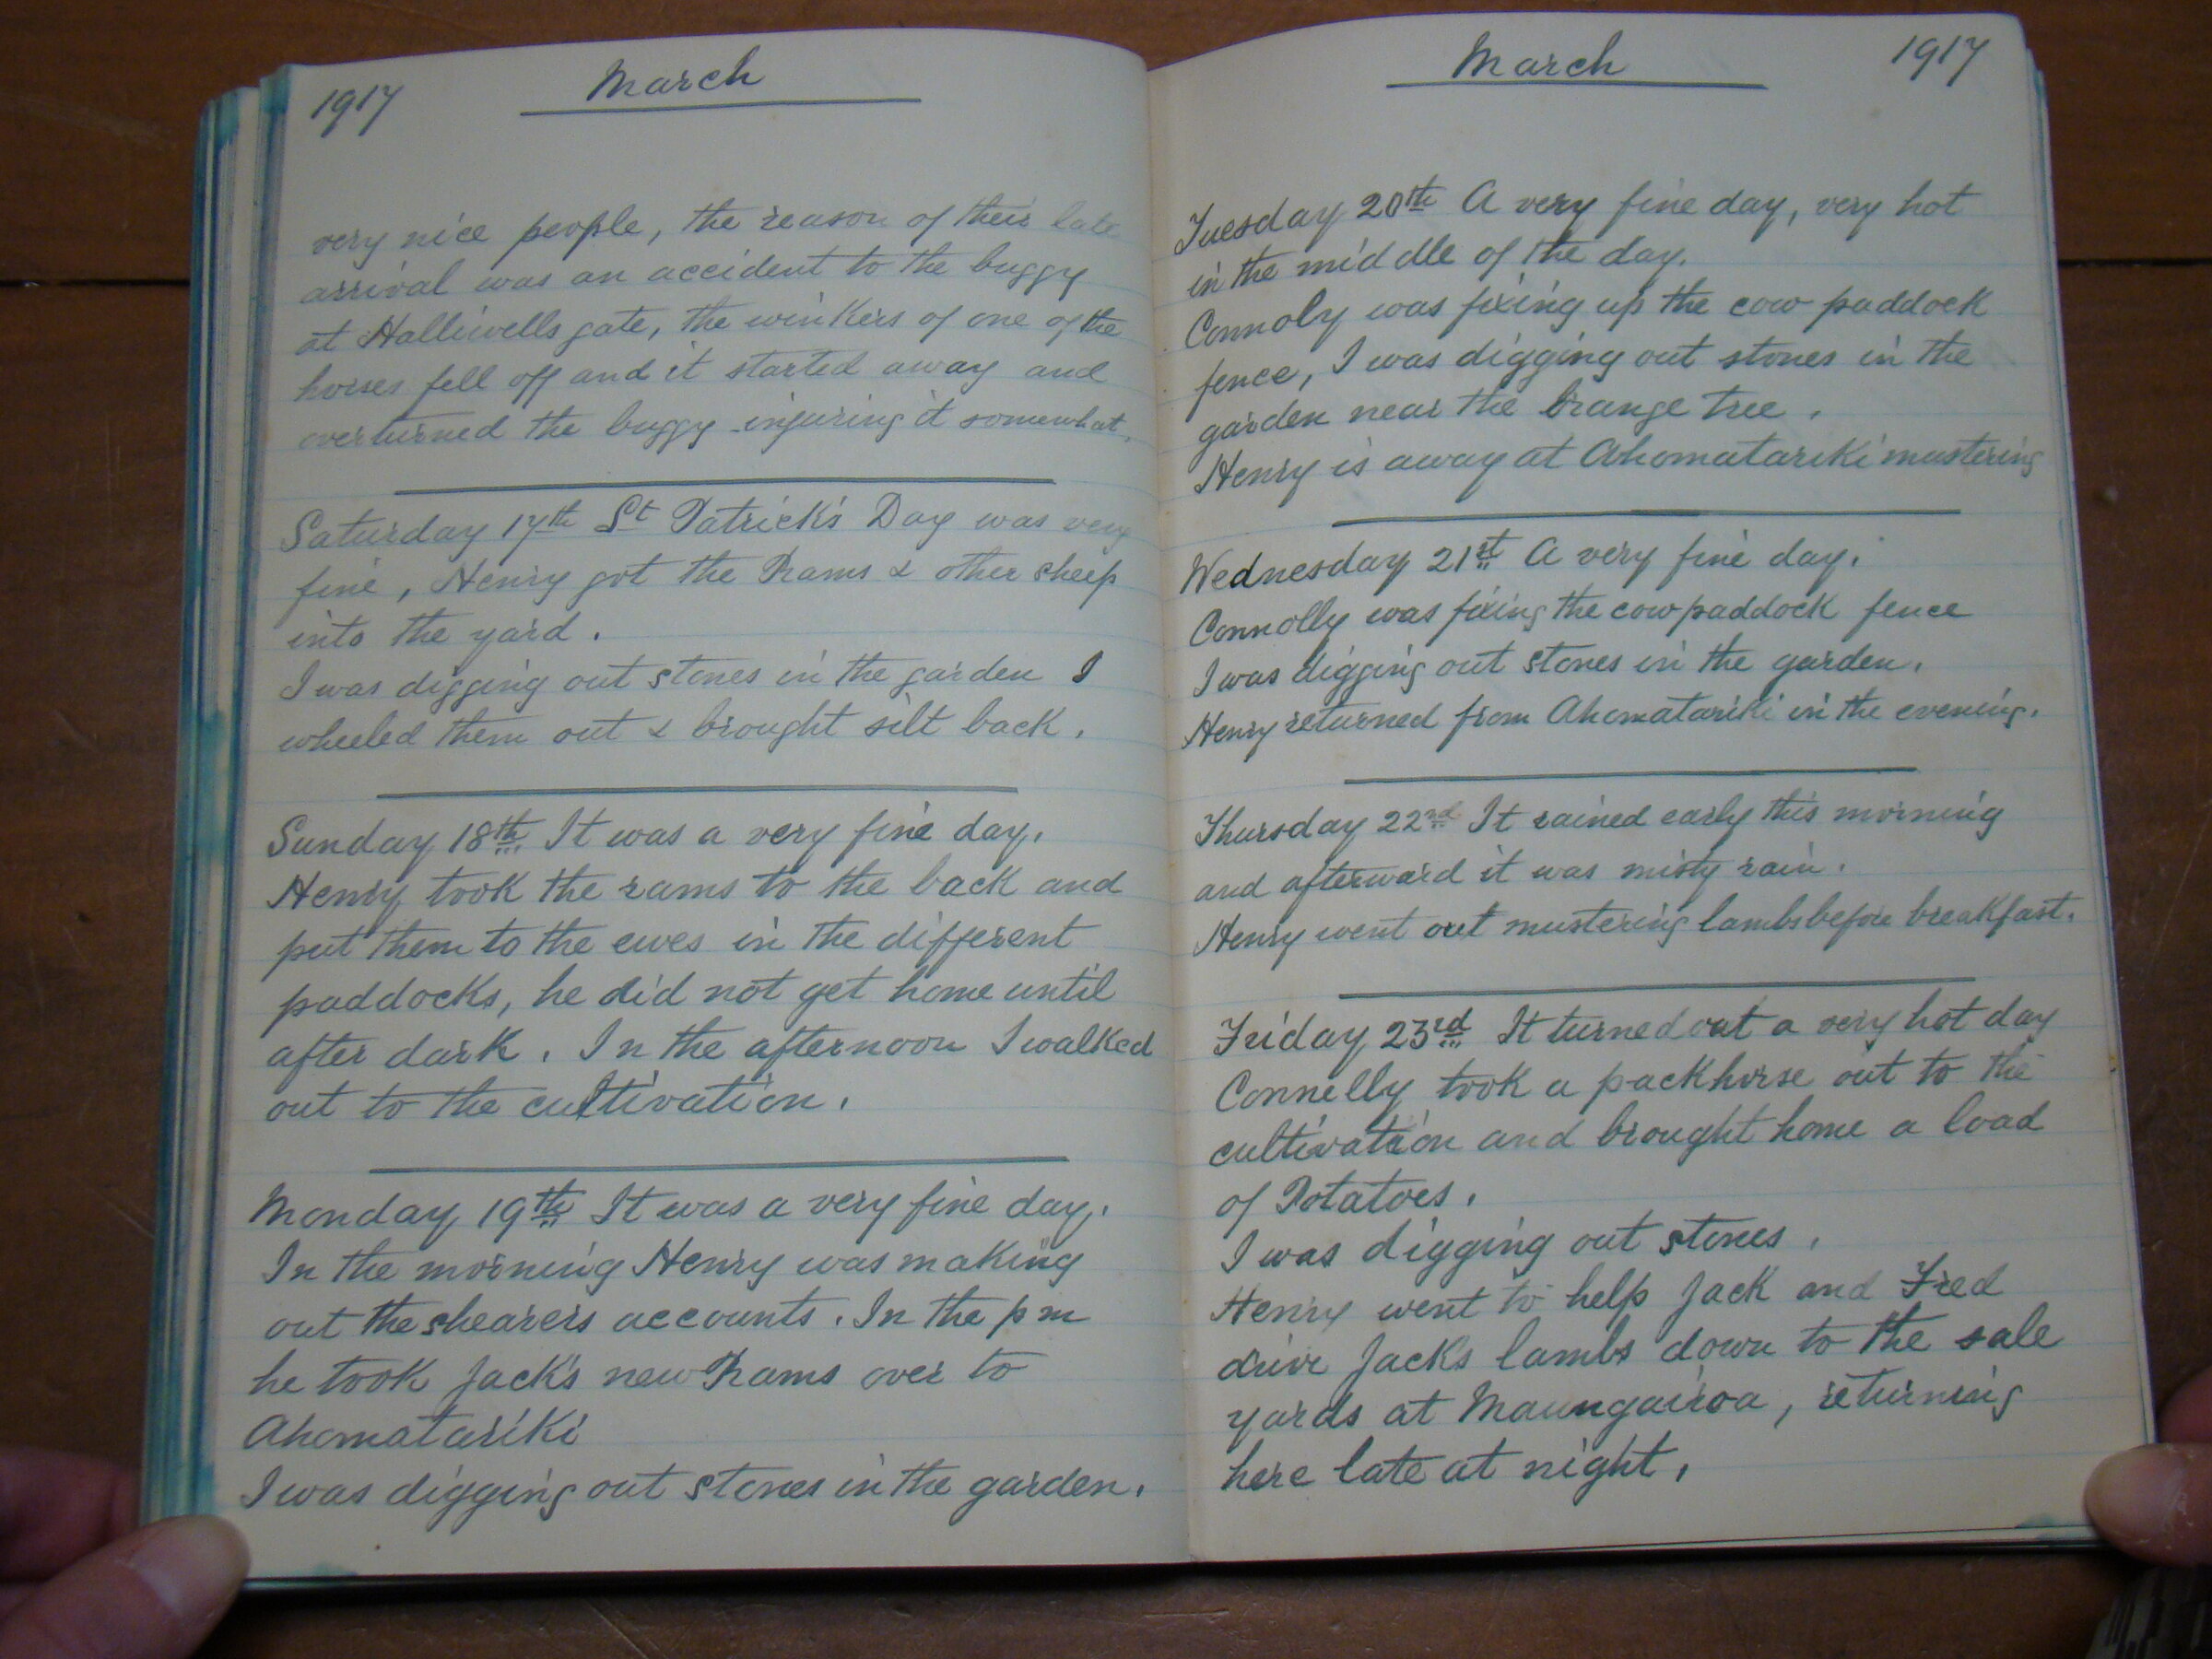 1917 March
very nice people, the reason of their late
arrival was an accident to the buggy
at Halliwells gate, the winkers of one of the
horses fell off and it started away and
overturned the buggy injuring it somewhat.
Saturday 17th St Patrick's Day was very
fine, Henry got the Rams & other sheep
into the yard.
I was digging out stones in the garden I
wheeled them out & brought silt back.
Sunday 18th It was a very fine day.
Henry took the rams to the back and
put them to the ewes in the different
paddocks, he did not get home until
after dark. In the afternoon I walked
out to the cultivation.
Monday 19th It was a very fine day.
In the morning Henry was making
out the shearers accounts. In the pm
he took Jack's new Rams over to
Ahomatariki
I was digging out stones in the garden.
March 1917
Tuesday 20th A very fine day, very hot
in the middle of the day.
Connoly was fixing up the cow paddock
fence, I was digging out stones in the
garden near the Orange tree.
Henry is away at Ahomatariki mustering
Wednesday 21st A very fine day.
Connolly was fixing the cow paddock fence
I was digging out stones in the garden.
Henry returned from Ahomatariki in the evening.
Thursday 22nd It rained early this morning
and afterward it was misty rain.
Henry went out mustering lambs before breakfast.
Friday 23rd It turned out a very hot day
Connelly took a packhorse out to the
cultivation and brought home a load
of Potatoes.
I was digging out stones.
Henry went to help Jack and Fred
drive Jacks lambs down to the sale
yards at Maungairoa, returning
here late at night.